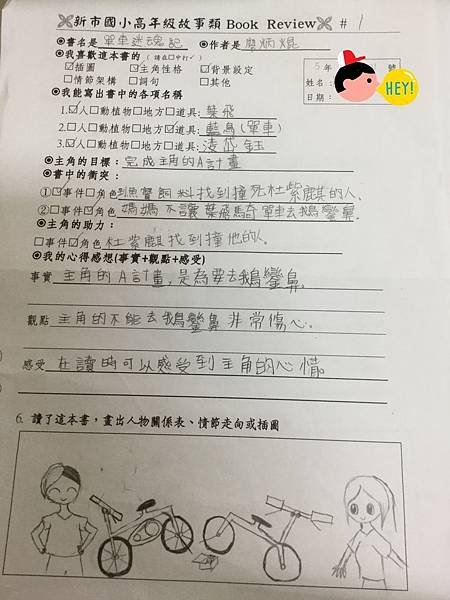 新市國小高年級故事類 Book Review # 1
◉書名是 單車迷魂記 ◉作者是 廖炳焜
◉我喜歡這本書的(請在□中打✓)
☑插圖 ☑主角性格 ☑背景設定
□情節架構 □詞句 □其他
5年 號
姓名:
日期:
HEY!
◉我能寫出書中的各項名稱
1.☑人□動植物□地方□道具: 葉飛
2.□人□動植物□地方☑道具: 藍鳥(單車)
3.☑人□動植物□地方□道具: 淩岱鈺
◉主角的目標: 完成主角的A計畫
◉書中的衝突:
①☑事件□角色 到魚聲飼料找到撞死杜紫麒的人.
②□事件☑角色 媽媽不讓葉飛騎單車去鵝鑾鼻.
◉主角的助力:
□事件☑角色 杜紫麒找到撞他的人.
◉我的心得感想(事實+觀點+感受)
事實 主角的A計畫,是為要去鵝鑾鼻.
觀點 主角的不能去鵝鑾鼻非常傷心.
感受 在讀時可以感受到主角的心情.
6. 讀了這本書,畫出人物關係表、情節走向或插圖